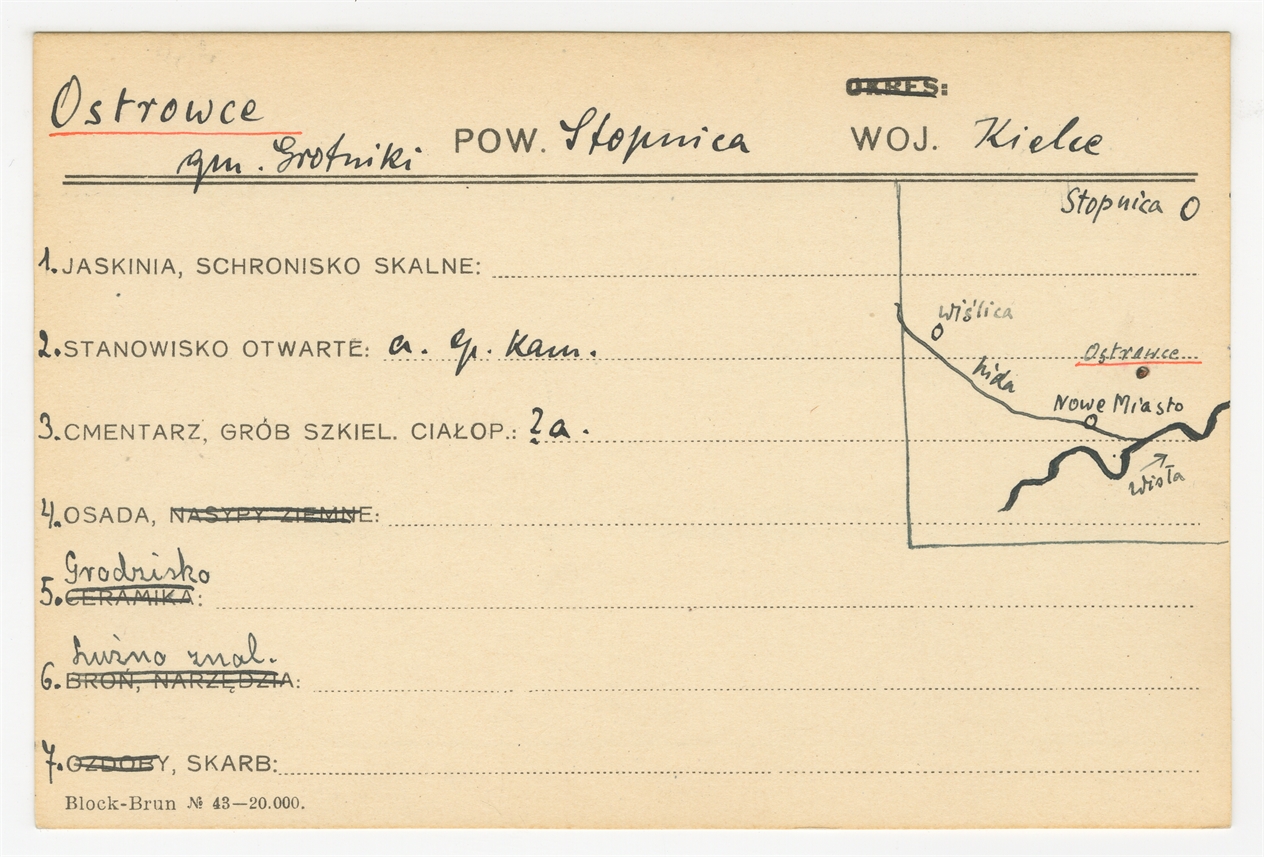 Ostrowce
OKRES:
gm. Grotniki POW. Stopnica WOJ. Kielce
Stopnica
1. JASKINIA, SCHRONISKO SKALNE:
Wiślica
2. STANOWISKO OTWARTE: a. ep. kam.
Ostrowce
Nida
Nowe Miasto
3. CMENTARZ, GRÓB SZKIEL. CIAŁOP.: ? a.
Wisła
4. OSADA, NASYPY ZIEMNE:
Grodzisko
5. CERAMIKA:
Luźno znal.
6. BROŃ, NARZĘDZIA:
7. OZDOBY, SKARB:
Block-Brun № 43—20.000.